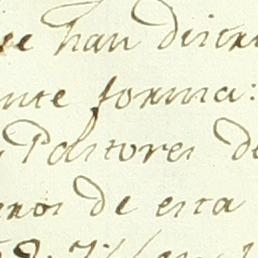 se han discri
ente forma:
Pastores de
enos de esta